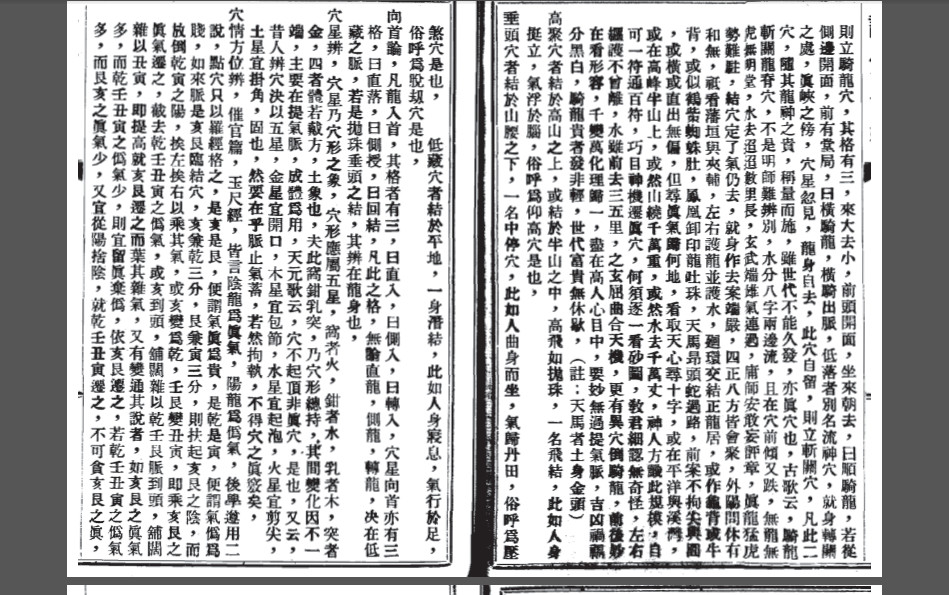 則立騎龍穴，其格有三，來大去小，前頭開面，坐來朝去，曰順騎龍，若從
側邊開面，前有堂局，曰橫騎龍，橫騎出脈，低落者別名流神穴，就身轉關
之處，眞峽之傍，穴星忽見，龍身自去，此穴自留，則立斬關穴，凡此二
穴，隨其龍神之貴，稱量而施，雖世代不能久發，亦眞穴也，古歌云，騎龍
斬關龍脊穴，不是明師難辨別，水分八字兩邊流，且在穴前傾又跌，無龍無
虎無明堂，水去迢迢數里長，玄武端雄氣連過，庸師安敢妄評章，眞龍猛虎
勢難駐，結穴定了氣仍去，就身作去案端嚴，四正八方皆會聚，外陽問休有
和無，祗看藩垣與夾輔，左右護龍並護水，廻環交結正龍居，或作龜背或牛
背，或似鶴嘴蜘蛛肚，鳳凰卸印龍吐珠，天馬昂頭蛇過路，前案不拘
，或橫或直出無偏，但尋眞氣歸何地，看取天心尋十字，或在平洋與溪灣，
或在高峰半山上，或然山繞千萬重，或然水去千萬丈，神人方識此規模，自
可一符通百符，巧目神機還眞穴，何須逐一看砂圖，敎君細認無奇怪，左右
纒護不曾離，水雖前去三五里，之玄屈曲合天機，更有異穴倒騎龍，前後妙
在看形容，千變萬化理歸一，盡在高人心目中，要妙無過提氣脈，吉凶禍福
分黑白，騎龍貴者發非輕，世代富貴無休歇，（註：天馬者土身金頭）
高聚穴者結於高山之上，或結於半山之中，高飛如拋珠，一名飛結，此如人身
挺立，氣浮於腦，俗呼爲仰高穴是也，
垂頭穴者結於山腰之下，一名中停穴，此如人曲身而坐，氣歸丹田，俗呼爲壓
煞穴是也，　低藏穴者結於平地，一身潛結，此如人身寢息，氣行於足，
俗呼爲脫刼穴是也，
向首論，凡龍入首，其格者有三，曰直入，曰側入，曰轉入，穴星向首亦有三
格，曰直落，曰側授，曰回結，凡此之格，無論直龍，側龍，轉龍，决在低
藏之脈，若是拋珠垂頭之結，其辨在龍身也，
穴星辨，穴星乃穴形之象，穴形應屬五星，窩者火，鉗者水，乳者木，突者
金，四者體若戴方，土象也，夫此窩鉗乳突，乃穴形總持，其間變化因不一
端，主要在提氣脈，成體爲用，天元歌云，穴不起頂非眞穴，是也，又云，
昔人辨穴決以五星，金星宜開口，木星宜包節，水星宜起泡，火星宜剪尖，
土星宜掛角，固也，然要在乎脈止氣蓄，若然拘執，不得穴之眞竅矣，
穴情方位辨，催官篇，玉尺經，皆言陰龍爲眞氣，陽龍爲僞氣，後學遵用二
說，點穴只以羅經格之，是亥是艮，便謂氣眞爲貴，是乾是寅，便謂氣僞爲
賤，如來脈是亥艮臨結穴，亥兼乾三分，艮兼寅三分，則扶起亥艮之陰，而
放倒乾寅之陽，挨左挨右以乘其氣，或亥變爲乾，壬艮變丑寅，即乘亥艮之
眞氣遷之，截去乾壬丑寅之僞氣，或亥到頭，舖闊雜以乾壬艮脈到頭，舖闊
雜以丑寅，即提高就亥艮遷之而葉其雜氣，又有變通其說者，如亥艮之眞氣
多，而乾壬丑寅之僞氣少，則宜留眞棄僞，依亥艮遷之，若乾壬丑寅之僞氣
多，而艮亥之眞氣少，又宜從陽捨陰，就乾壬丑寅遷之，不可貪亥艮之眞，